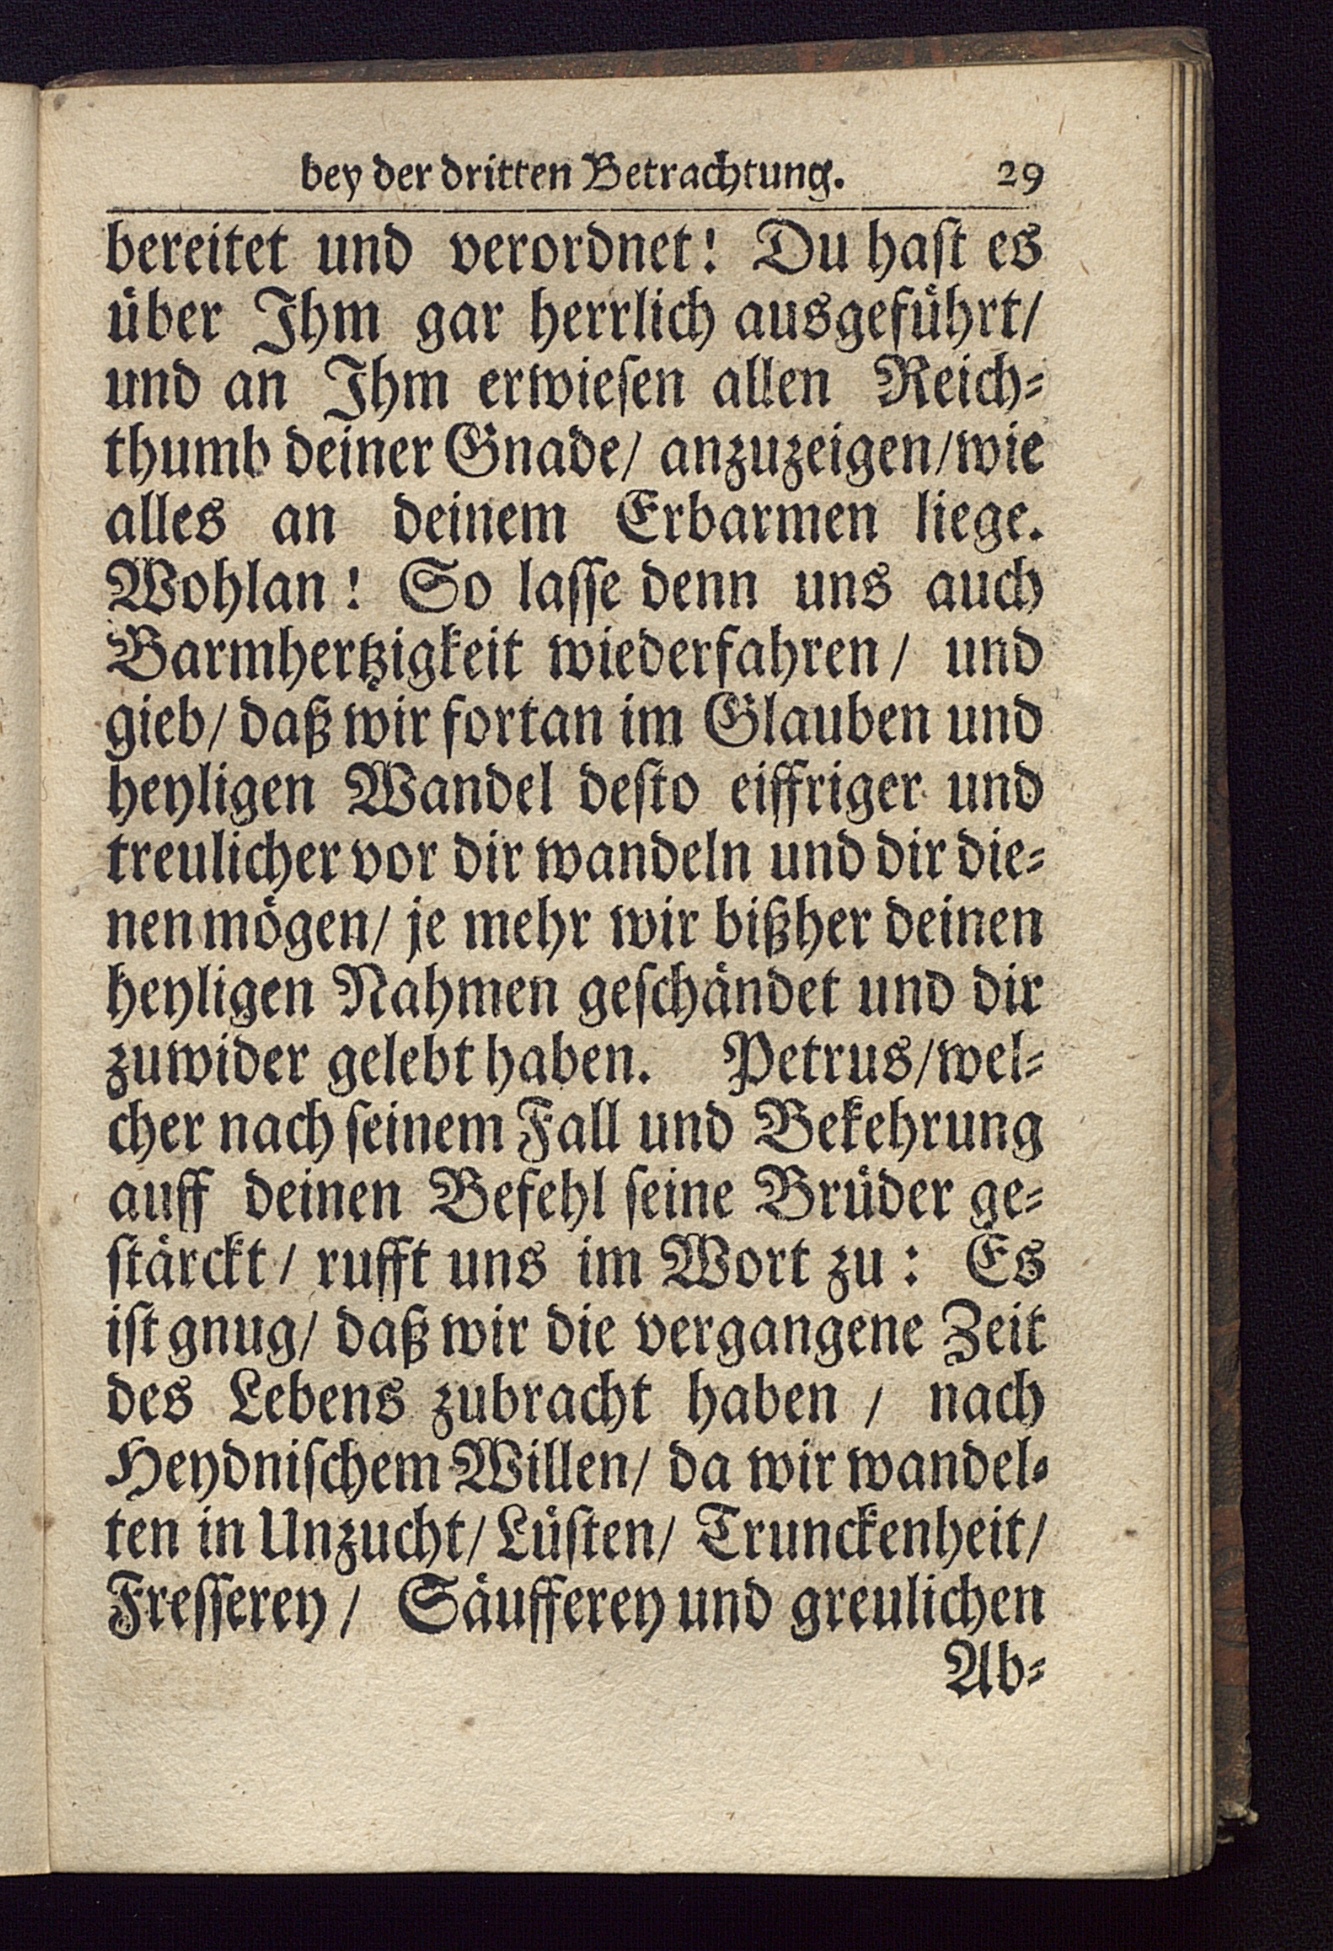 bey der dritten Betrachtung. 29
bereitet und verordnet! Du haſt es
uͤber Ihm gar herrlich ausgefuͤhrt/
und an Ihm erwieſen allen Reich⸗
thumb deiner Gnade/ anzuzeigen/wie
alles an deinem Erbarmen liege.
Wohlan! So laſſe denn uns auch
Barmhertzigkeit wiederfahren/ und
gieb/ daß wir fortan im Glauben und
heyligen Wandel deſto eiffriger und
treulicher vor dir wandeln und dir die⸗
nen moͤgen/ je mehr wir bißher deinen
heyligen Nahmen geſchaͤndet und dir
zuwider gelebt haben. Petrus/wel⸗
cher nach ſeinem Fall und Bekehrung
auff deinen Befehl ſeine Bruͤder ge⸗
ſtaͤrckt/ rufft uns im Wort zu: Es
iſt gnug/ daß wir die vergangene Zeit
des Lebens zubracht haben / nach
Heydniſchem Willen/ da wir wandel⸗
ten in Unzucht/ Luͤſten/ Trunckenheit/
Freſſerey/ Saͤufferey und greulichen
Ab⸗